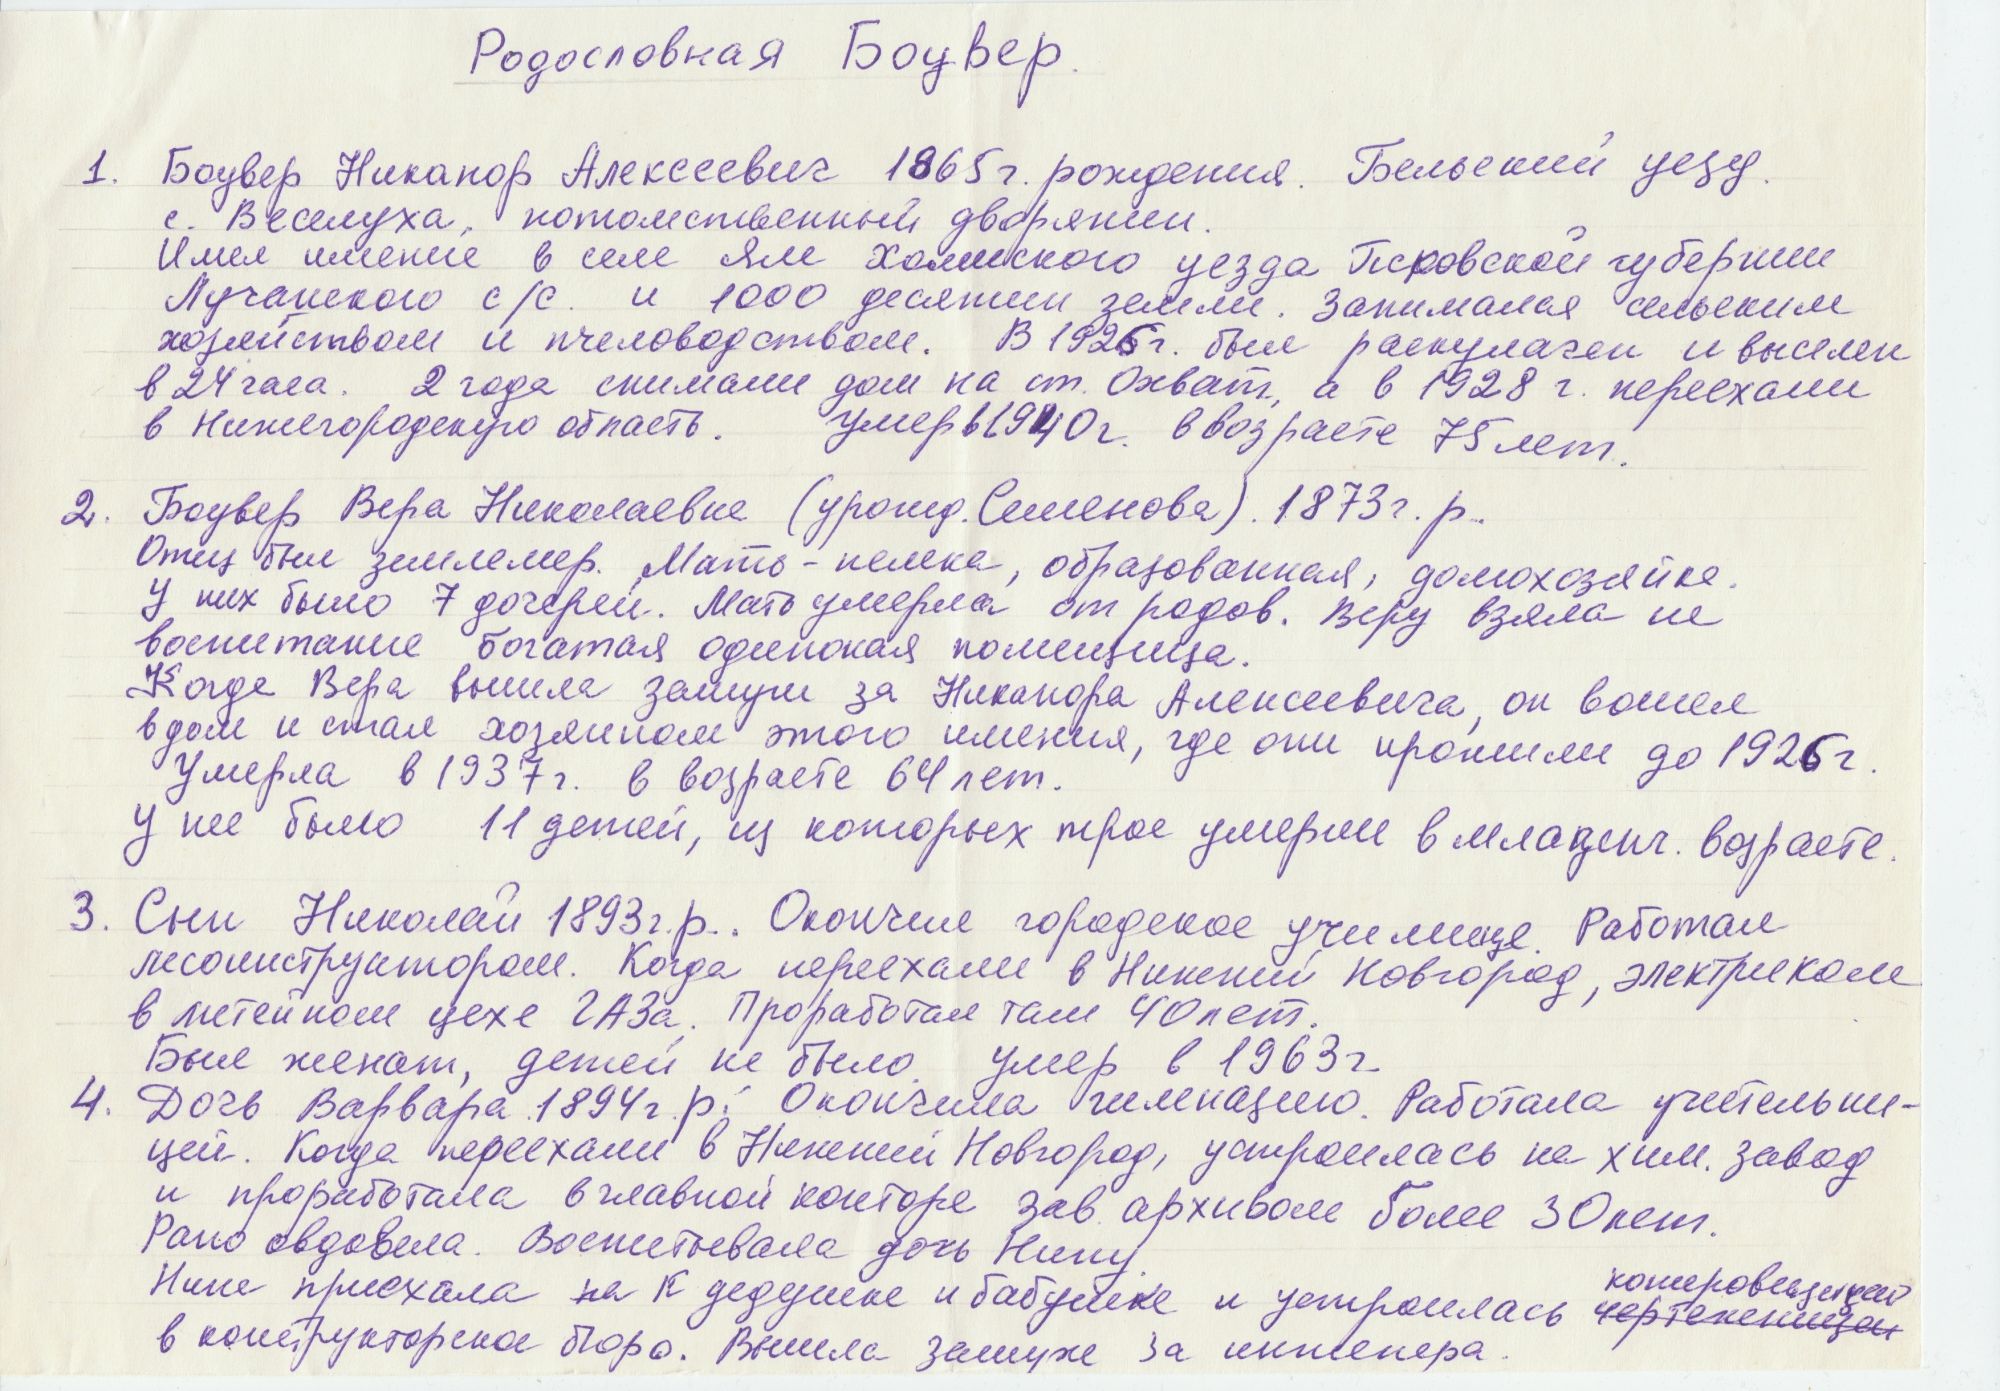 Родословная Боувер.
1. Боувер Никанор Алексеевич 1865 г. рождения. Бельский уезд.
с. Веселуха, потомственный дворянин.
Имел имение в селе Ям Холмского уезда Псковской губернии
Лучанского с/с. и 1000 десятин земли. Занимался сельским
хозяйством и пчеловодством. В 1926 г. был раскулачен и выселен
в 24 часа. 2 года снимали дом на ст. Охват, а в 1928 г. переехали
в Нижегородскую область. Умер в 1940 г. в возрасте 75 лет.
2. Боувер Вера Николаевна (урожд. Семенова). 1873 г. р.
Отец был землемер. Мать - немка, образованная, домохозяйка.
У них было 7 дочерей. Мать умерла от родов. Веру взяла на
воспитание богатая одинокая помещица.
Когда Вера вышла замуж за Никанора Алексеевича, он вошел
в дом и стал хозяином этого имения, где они прожили до 1926 г.
Умерла в 1937 г. в возрасте 64 лет.
У нее было 11 детей, из которых трое умерли в младенч. возрасте.
3. Сын Николай 1893 г. р.. Окончил городское училище. Работал
лесоинструктором. Когда переехали в Нижний Новгород, электриком
в литейном цехе ГАЗа. Проработал там 40 лет.
Был женат, детей не было. Умер в 1963 г.
4. Дочь Варвара 1894 г. р. Окончила гимназию. Работала учительни-
цей. Когда переехали в Нижний Новгород, устроилась на хим. завод
и проработала в главной конторе зав. архивом более 30 лет.
Рано овдовела. Воспитывала дочь Нину.
Нина приехала на к дедушке и бабушке и устроилась копировщицей чертежницей
в конструкторское бюро. Вышла замуж за инженера.